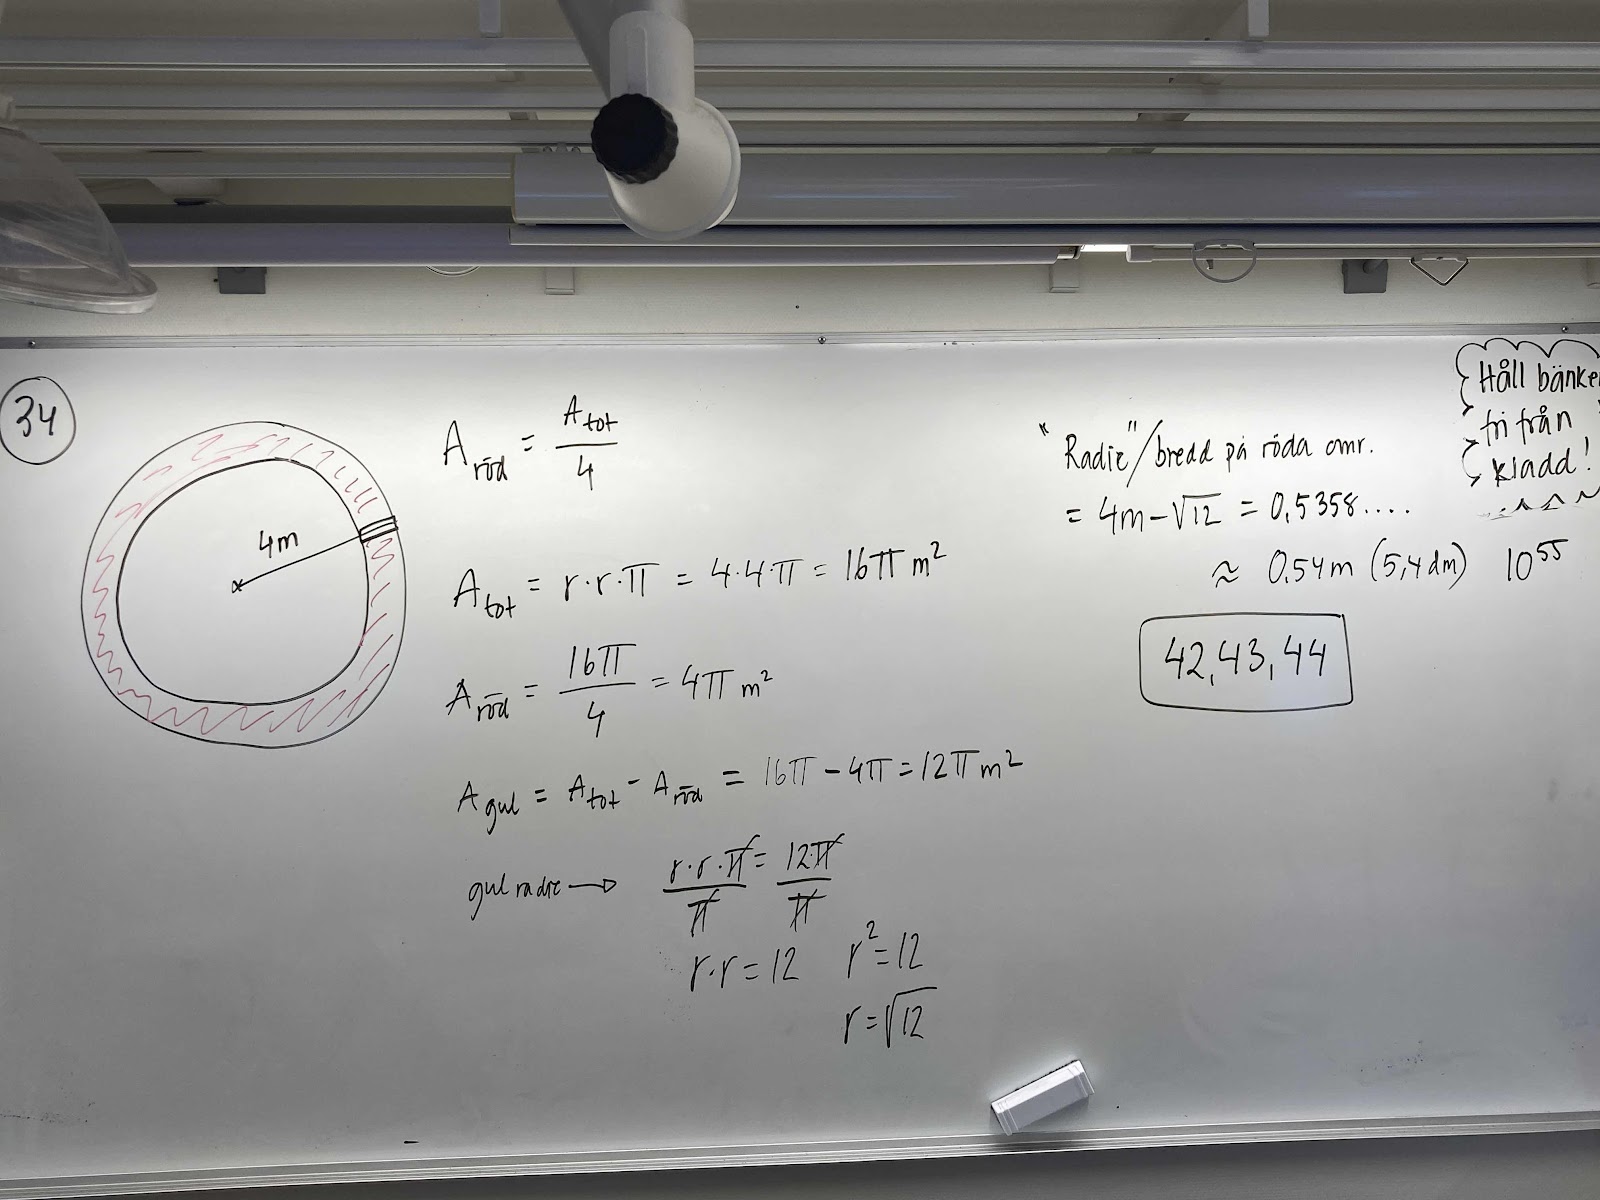 34
4m
A_röd = A_tot/4
A_tot = r·r·π = 4·4·π = 16π m²
A_röd = 16π/4 = 4π m²
A_gul = A_tot - A_röd = 16π - 4π = 12π m²
gul radie → r·r·π/π = 12π/π
r·r = 12 r² = 12
r = √12
"Radie"/bredd på röda omr.
= 4m - √12 = 0,5358....
≈ 0,54m (5,4dm) 10⁵⁵
42, 43, 44
Håll bänke
fri från
kladd!